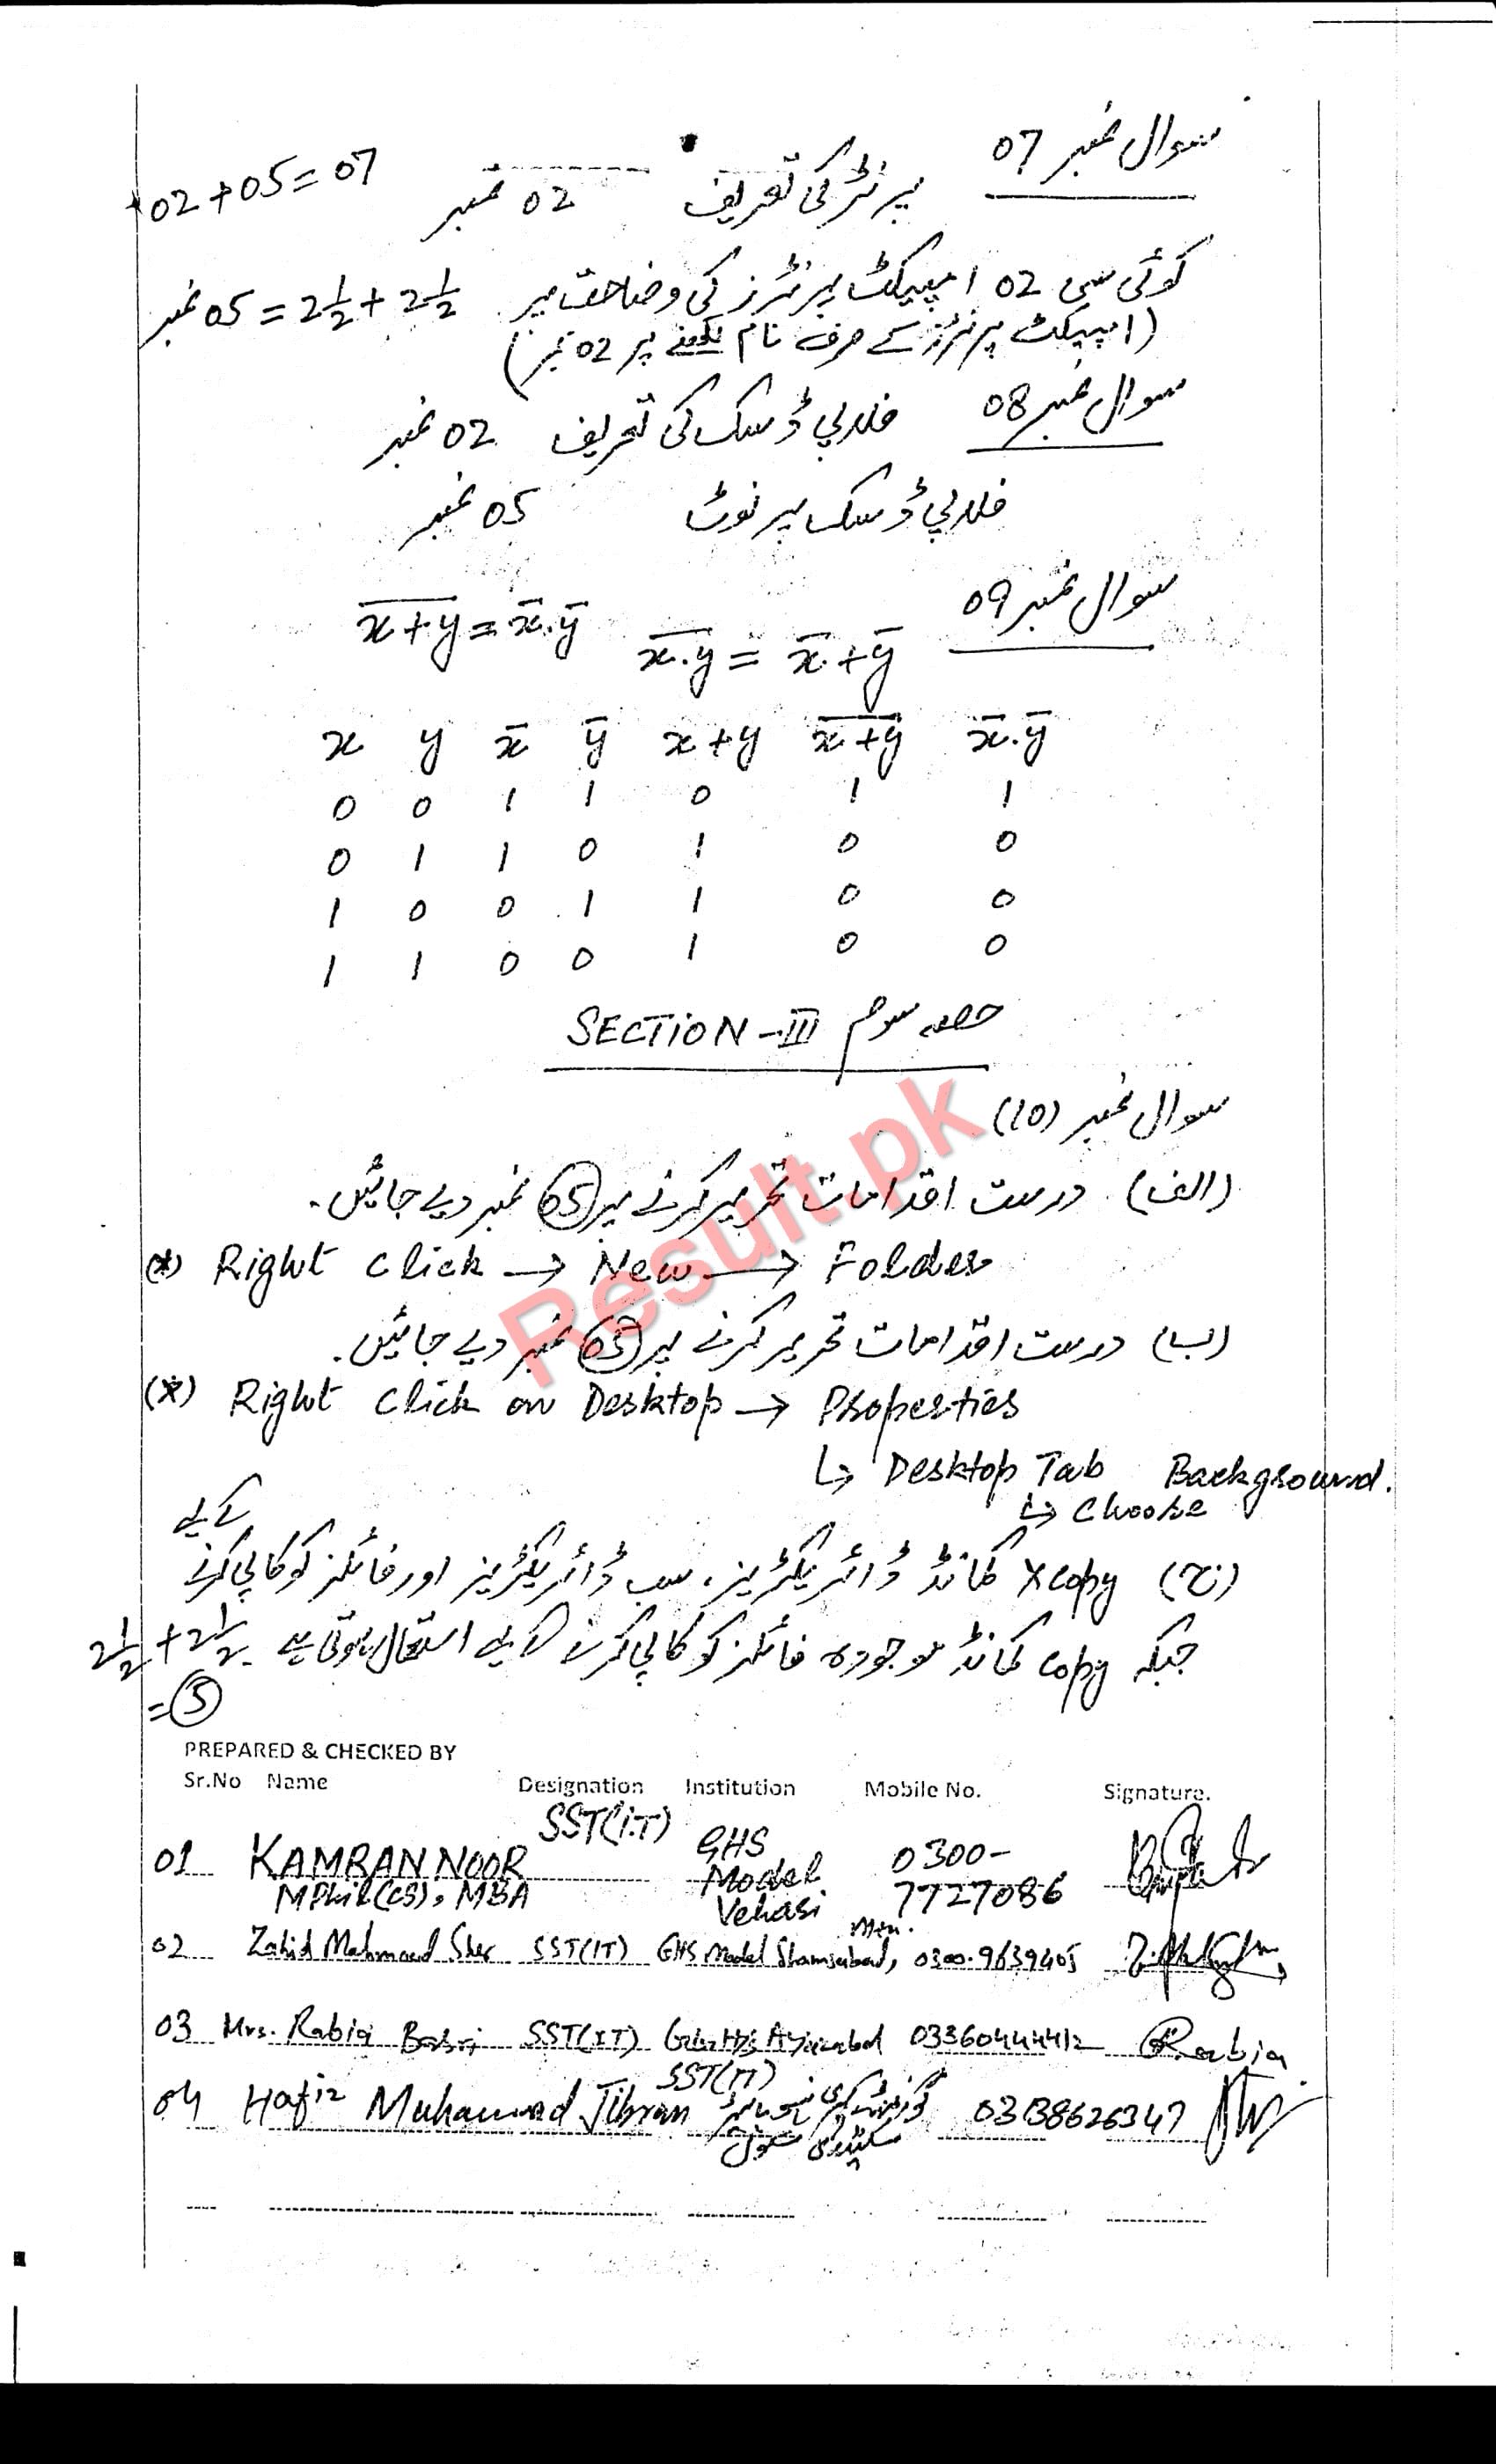 سوال نمبر 07 پرنٹر کی تعریف 02 نمبر 02+05=07
کوئی سی 02 امپیکٹ پرنٹرز کی وضاحت پر 2½+2½=05 نمبر
(امپیکٹ پرنٹرز کے صرف نام لکھنے پر 02 نمبر)
سوال نمبر 08 فلاپی ڈسک کی تعریف 02 نمبر
فلاپی ڈسک پر نوٹ 05 نمبر
سوال نمبر 09
x̅+̅y̅ = x̅.y̅
x̅.̅y̅ = x̅+y̅
x y x̅ y̅ x+y x̅+̅y̅ x̅.y̅
0 0 1 1 0 1 1
0 1 1 0 1 0 0
1 0 0 1 1 0 0
1 1 0 0 1 0 0
حصہ سوم SECTION-III
سوال نمبر (10)
(الف) درست اقدامات تحریر کرنے پر 05 نمبر دیے جائیں۔
(*) Right Click → New → Folder
(ب) درست اقدامات تحریر کرنے پر 05 نمبر دیے جائیں۔
(*) Right Click on Desktop → Properties
↳ Desktop Tab Background.
↳ Choose
(ج) Xcopy کمانڈ ڈائریکٹریز، سب ڈائریکٹریز اور فائلز کو کاپی کرنے کے لیے
جبکہ copy کمانڈ موجودہ فائلز کو کاپی کرنے کے لیے استعمال ہوتی ہے۔ 2½+2½
=5
PREPARED & CHECKED BY
Sr.No Name Designation Institution Mobile No. Signature.
01 KAMRAN NOOR SST(I.T) GHS 0300-
MPhil(CS), MBA Model 7727086
Vehari
02 Zahid Mahmood Sher SST(IT) GHS Model Shamsabad, Mtn. 0300-9639405
03 Mrs. Rabia SST(IT) 03360444412 Rabia
04 Hafiz Muhammad Jibran SST(IT) 03138626347
سکینڈری سکول
Result.pk